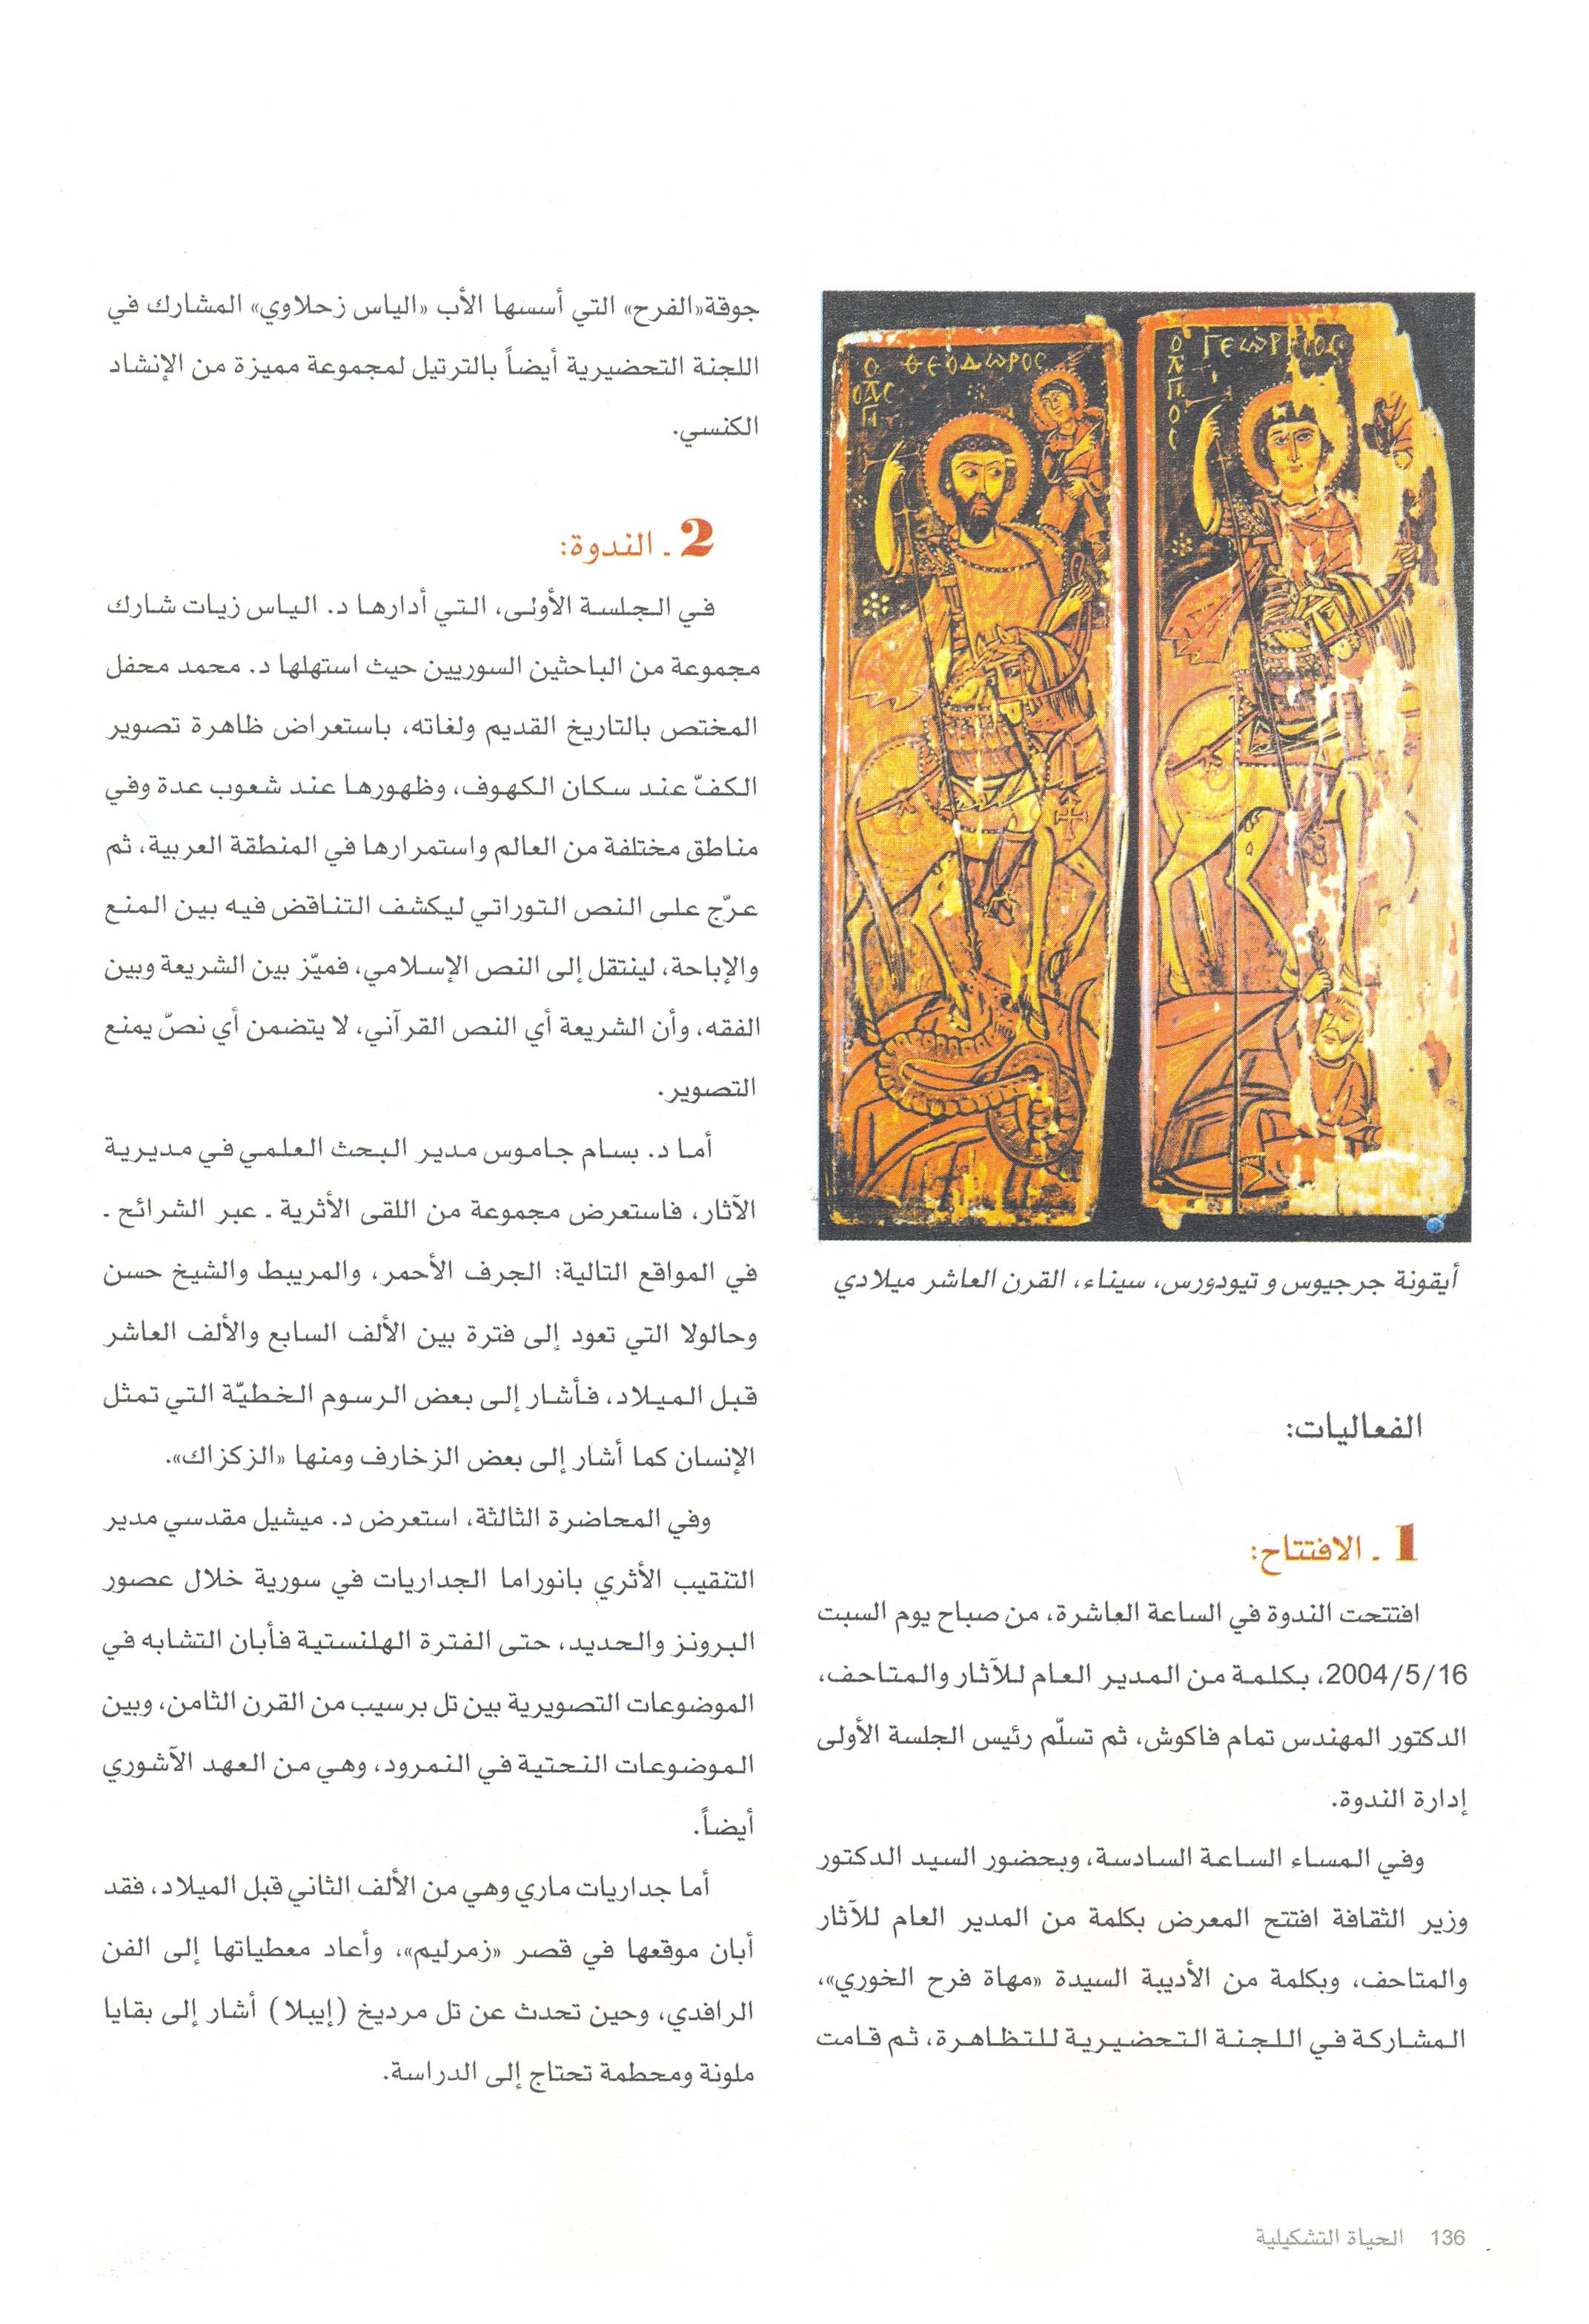 Ο ΘΕΟΔΩΡΟC
ΓΕΩΡΓΙΟC
أيقونة جرجيوس و تيودورس، سيناء، القرن العاشر ميلادي
الفعاليات:
1 ـ الافتتاح:
افتتحت الندوة في الساعة العاشرة، من صباح يوم السبت
2004/5/16، بكلمة من المدير العام للآثار والمتاحف،
الدكتور المهندس تمام فاكوش، ثم تسلّم رئيس الجلسة الأولى
إدارة الندوة.
وفي المساء الساعة السادسة، وبحضور السيد الدكتور
وزير الثقافة افتتح المعرض بكلمة من المدير العام للآثار
والمتاحف، وبكلمة من الأديبة السيدة «مهاة فرح الخوري»،
المشاركة في اللجنة التحضيرية للتظاهرة، ثم قامت
جوقة«الفرح» التي أسسها الأب «الياس زحلاوي» المشارك في
اللجنة التحضيرية أيضاً بالترتيل لمجموعة مميزة من الإنشاد
الكنسي.
2 ـ الندوة:
في الجلسة الأولى، التي أدارها د. الياس زيات شارك
مجموعة من الباحثين السوريين حيث استهلها د. محمد محفل
المختص بالتاريخ القديم ولغاته، باستعراض ظاهرة تصوير
الكفّ عند سكان الكهوف، وظهورها عند شعوب عدة وفي
مناطق مختلفة من العالم واستمرارها في المنطقة العربية، ثم
عرّج على النص التوراتي ليكشف التناقض فيه بين المنع
والإباحة، لينتقل إلى النص الإسلامي، فميّز بين الشريعة وبين
الفقه، وأن الشريعة أي النص القرآني، لا يتضمن أي نصّ يمنع
التصوير.
أما د. بسام جاموس مدير البحث العلمي في مديرية
الآثار، فاستعرض مجموعة من اللقى الأثرية ـ عبر الشرائح ـ
في المواقع التالية: الجرف الأحمر، والمريبط والشيخ حسن
وحالولا التي تعود إلى فترة بين الألف السابع والألف العاشر
قبل الميلاد، فأشار إلى بعض الرسوم الخطيّة التي تمثل
الإنسان كما أشار إلى بعض الزخارف ومنها «الزكزاك».
وفي المحاضرة الثالثة، استعرض د. ميشيل مقدسي مدير
التنقيب الأثري بانوراما الجداريات في سورية خلال عصور
البرونز والحديد، حتى الفترة الهلنستية فأبان التشابه في
الموضوعات التصويرية بين تل برسيب من القرن الثامن، وبين
الموضوعات النحتية في النمرود، وهي من العهد الآشوري
أيضاً.
أما جداريات ماري وهي من الألف الثاني قبل الميلاد، فقد
أبان موقعها في قصر «زمرليم»، وأعاد معطياتها إلى الفن
الرافدي، وحين تحدث عن تل مرديخ (إيبلا) أشار إلى بقايا
ملونة ومحطمة تحتاج إلى الدراسة.
136 الحياة التشكيلية